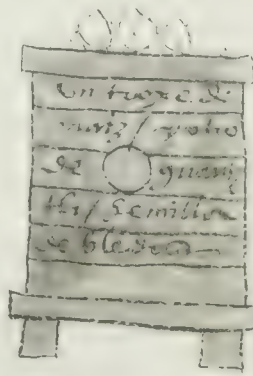 Un troxe de
maiz / yotro
de guauh
tli / semilla
de bledos